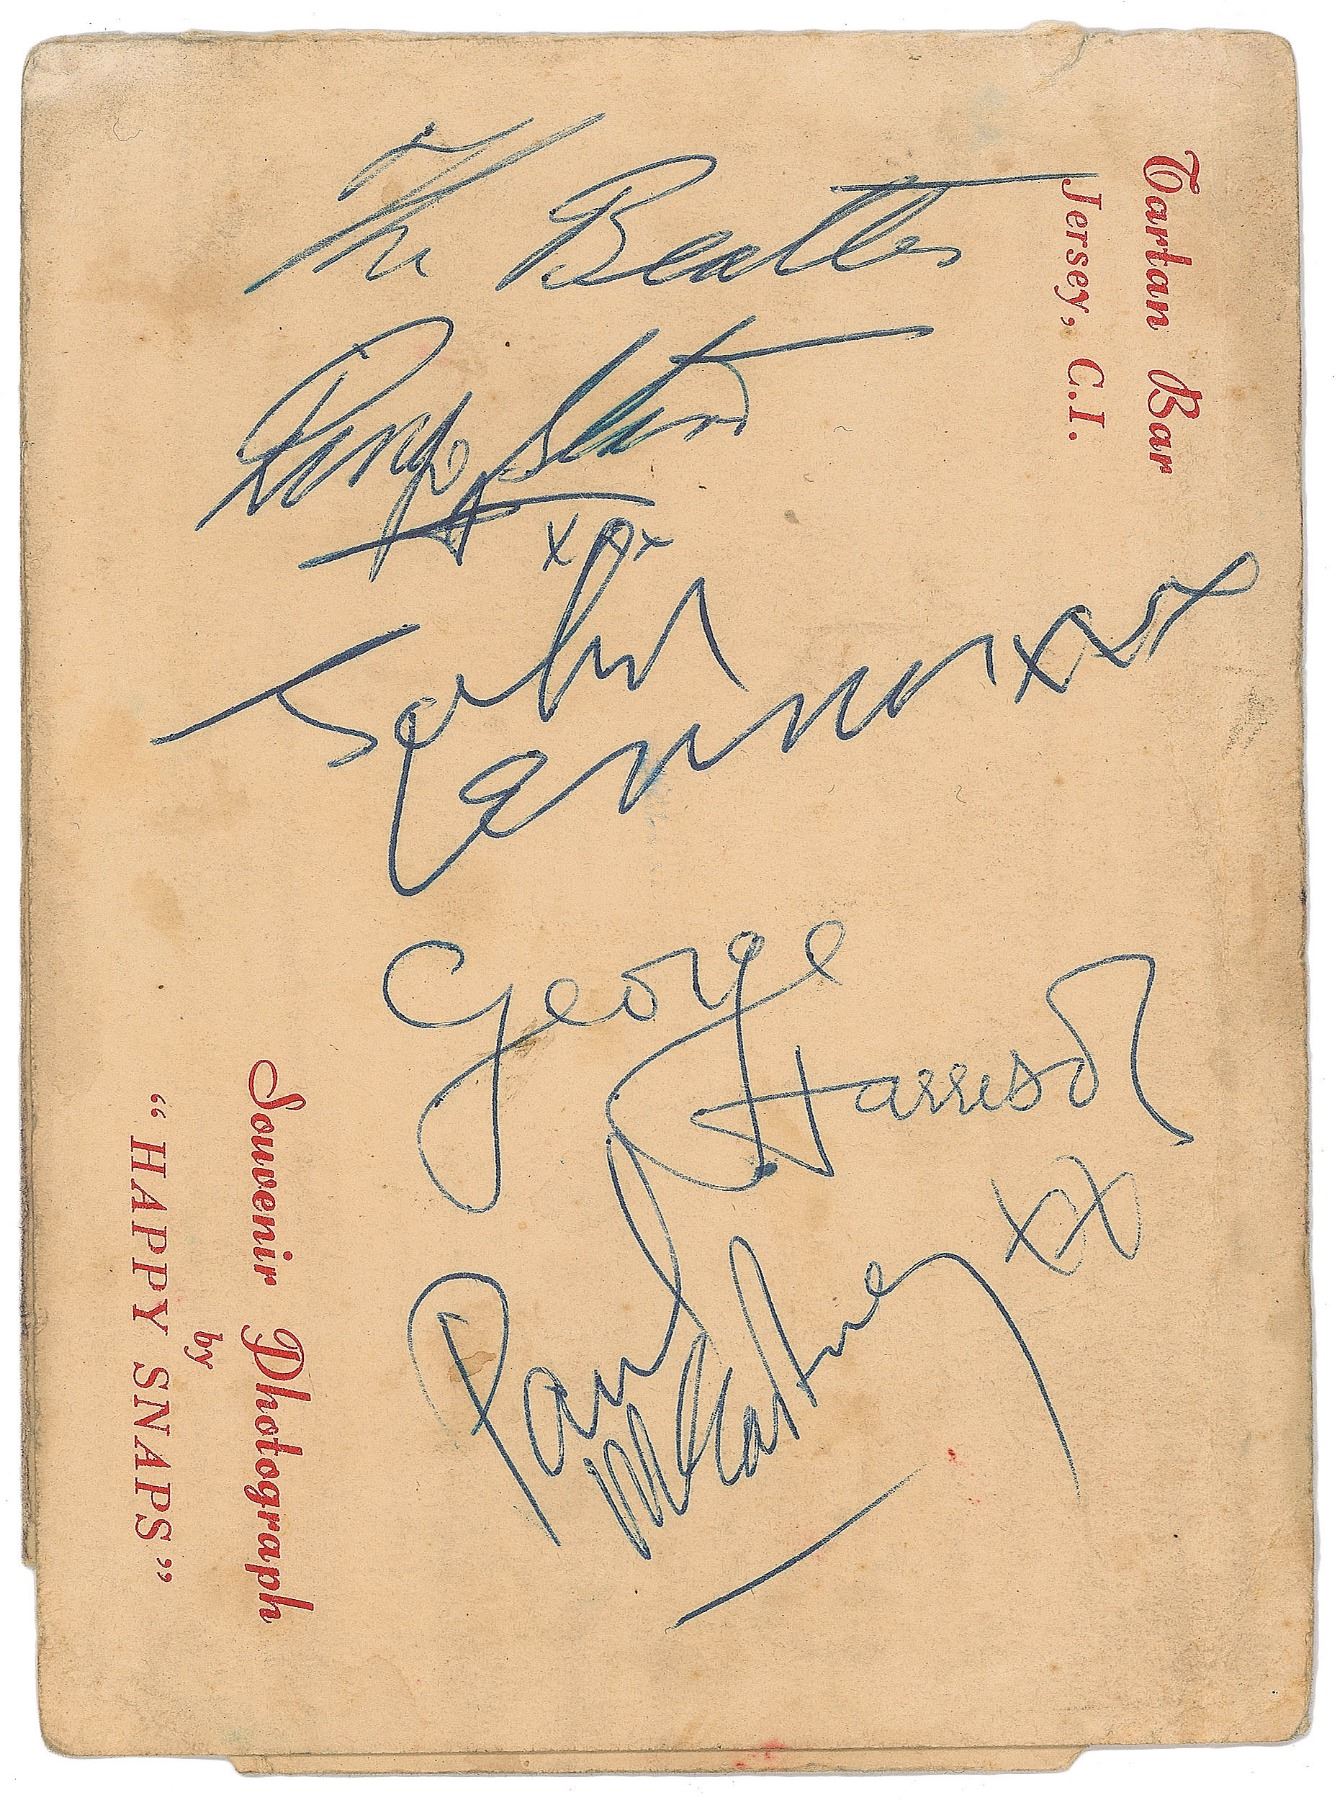 Tartan Bar
Jersey, C.I.
The Beatles
Ringo Starr
xxx
John
Lennon xxx
George
Harrison
Paul
McCartney xx
Souvenir Photograph
by
"HAPPY SNAPS"